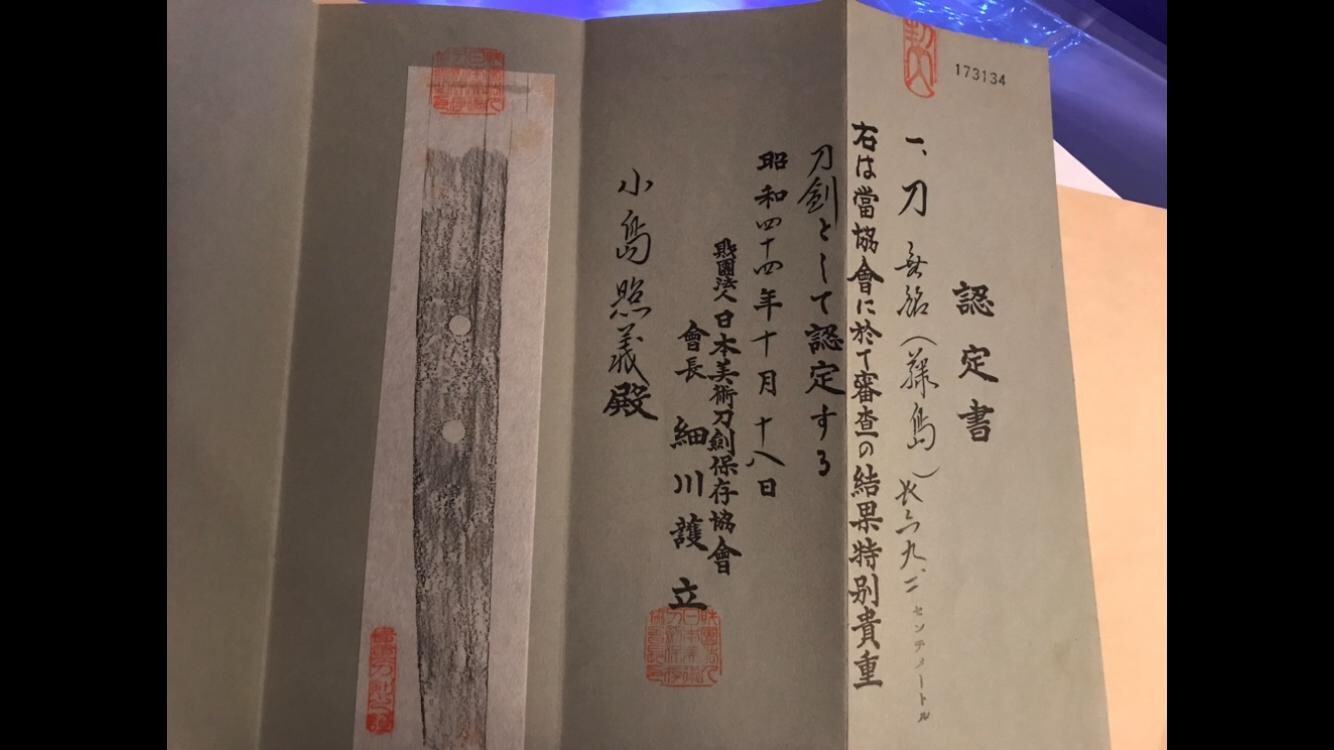 173134
認定書
一、刀 無銘（藤島）長六九、二センチメートル
右は當協會に於て審査の結果特別貴重
刀劍として認定する
昭和四十四年十月十八日
財團法人日本美術刀劍保存協會
會長 細川護立
小島照義殿